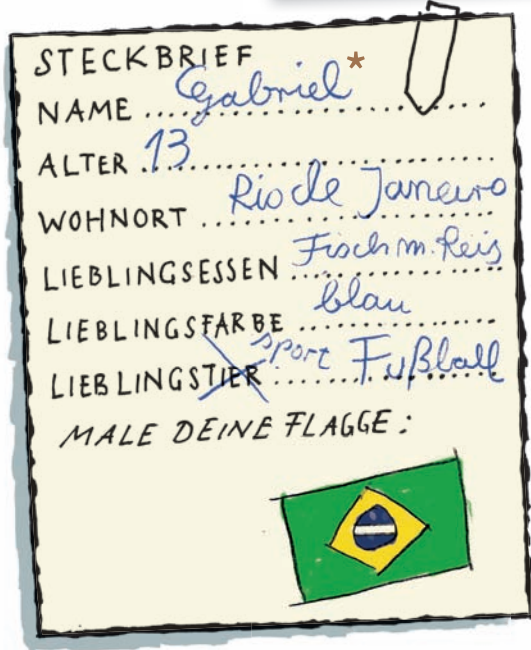 STECKBRIEF
NAME Gabriel*
ALTER 13
WOHNORT Rio de Janeiro
LIEBLINGSESSEN Fisch m. Reis
LIEBLINGSFARBE blau
LIEBLINGSTIER sport Fußball
MALE DEINE FLAGGE: